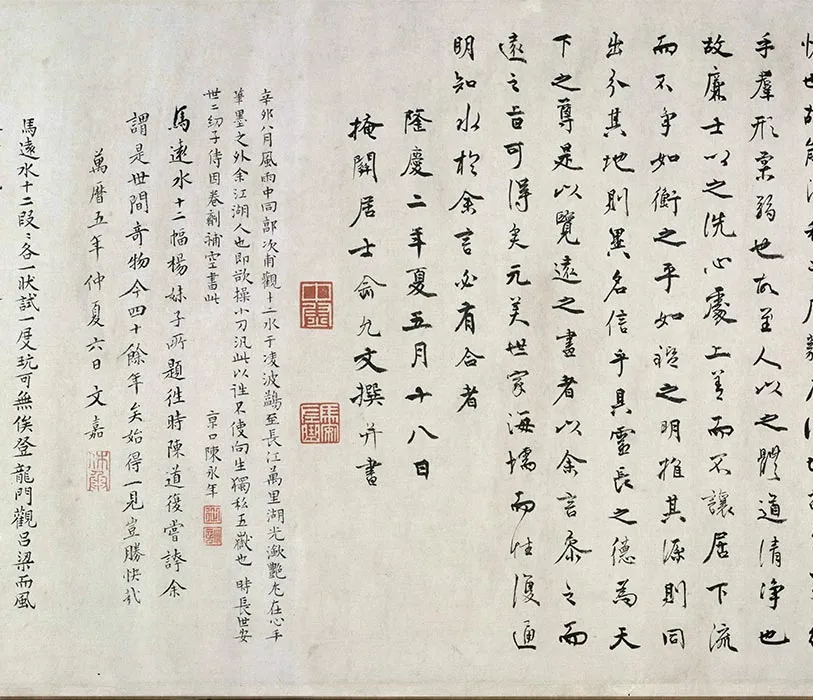 手羣形柔弱也故至人以之體道清净也
故廉士以之洗心處上善而不讓居下流
而不爭如衡之平如鑑之明推其源則同
出分其地則異名信乎具靈長之德為天
下之尊是以覽遠之畫者以余言叅之而
遠之旨可得矣元美世家海壖而性復通
明知水於余言必有合者
隆慶二年夏五月十八日
掩關居士俞允文撰并書
辛卯八月風雨中同郭次甫觀十二水于凌波鷁至長江萬里湖光瀲灩尤在心手
筆墨之外余江湖人也即欲操小刀汎此以往不使向生獨私五嶽也 時長世安
世二幼子侍因卷劑補空書此 京口陳永年
馬遠水十二幅楊妹子所題徃時陳道復嘗誇余
謂是世間奇物今四十餘年矣始得一見豈勝快哉
萬曆五年仲夏六日文嘉
馬遠水十二段〻各一狀試一展玩可無俟登龍門觀呂梁而風